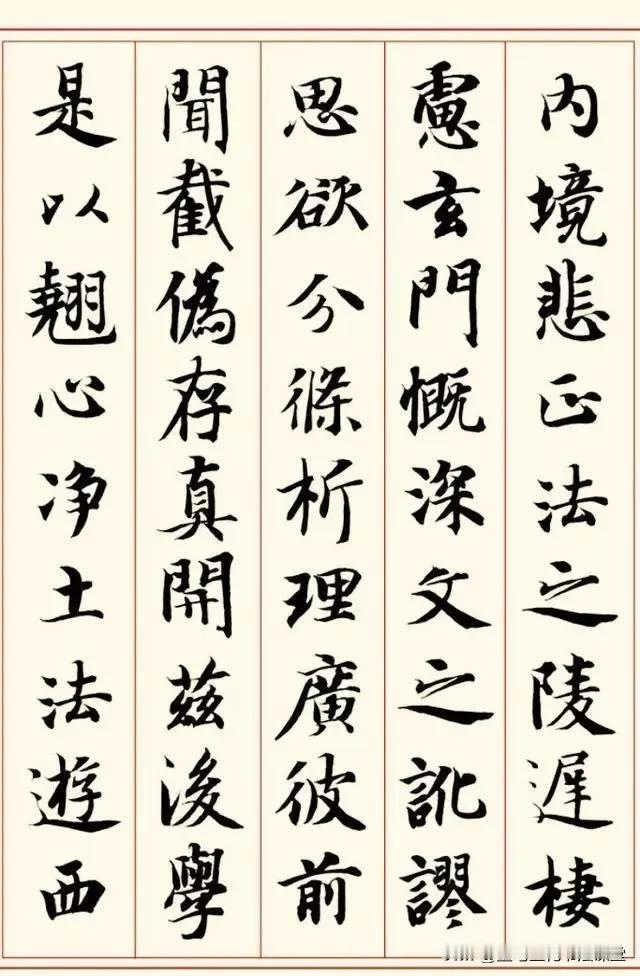 內境悲正法之陵遲棲
慮玄門慨深文之訛謬
思欲分條析理廣彼前
聞截偽存真開茲後學
是以翹心净土法遊西